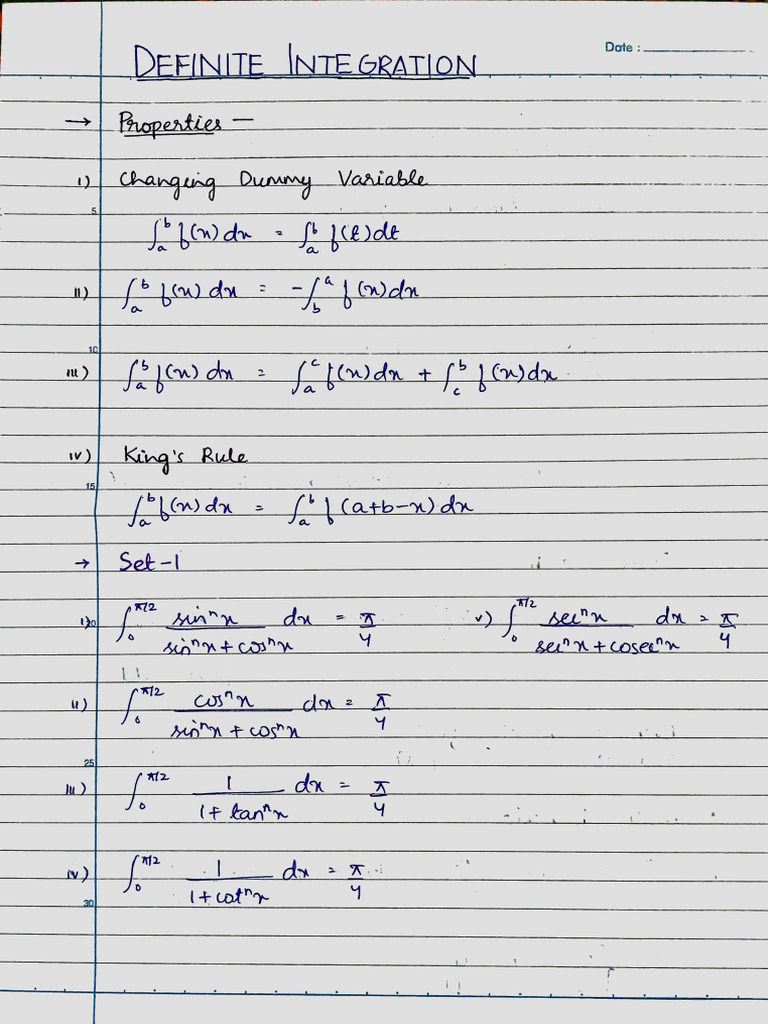 Date :
DEFINITE INTEGRATION
→ Properties —
i) Changing Dummy Variable
5
∫_a^b f(x) dx = ∫_a^b f(t) dt
ii) ∫_a^b f(x) dx = -∫_b^a f(x) dx
10
iii) ∫_a^b f(x) dx = ∫_a^c f(x) dx + ∫_c^b f(x) dx
iv) King's Rule
15
∫_a^b f(x) dx = ∫_a^b f(a+b-x) dx
→ Set-1
20
i) ∫_0^{π/2} sin^n x / (sin^n x + cos^n x) dx = π/4
v) ∫_0^{π/2} sec^n x / (sec^n x + cosec^n x) dx = π/4
ii) ∫_0^{π/2} cos^n x / (sin^n x + cos^n x) dx = π/4
25
iii) ∫_0^{π/2} 1 / (1 + tan^n x) dx = π/4
iv) ∫_0^{π/2} 1 / (1 + cot^n x) dx = π/4
30